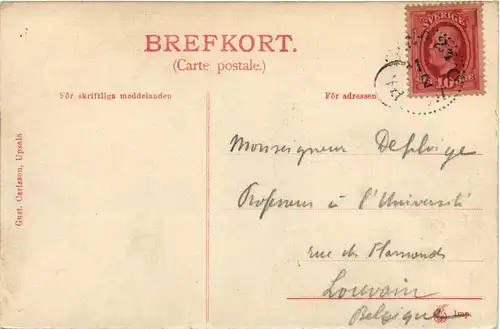 BREFKORT.
(Carte postale.)
SVERIGE
För skriftliga meddelanden
För adressen
Gust. Carlsson, Upsala
Monseigneur Deploige
Professeur à l'Université
rue des Flamands
Louvain
Belgique
Imp.